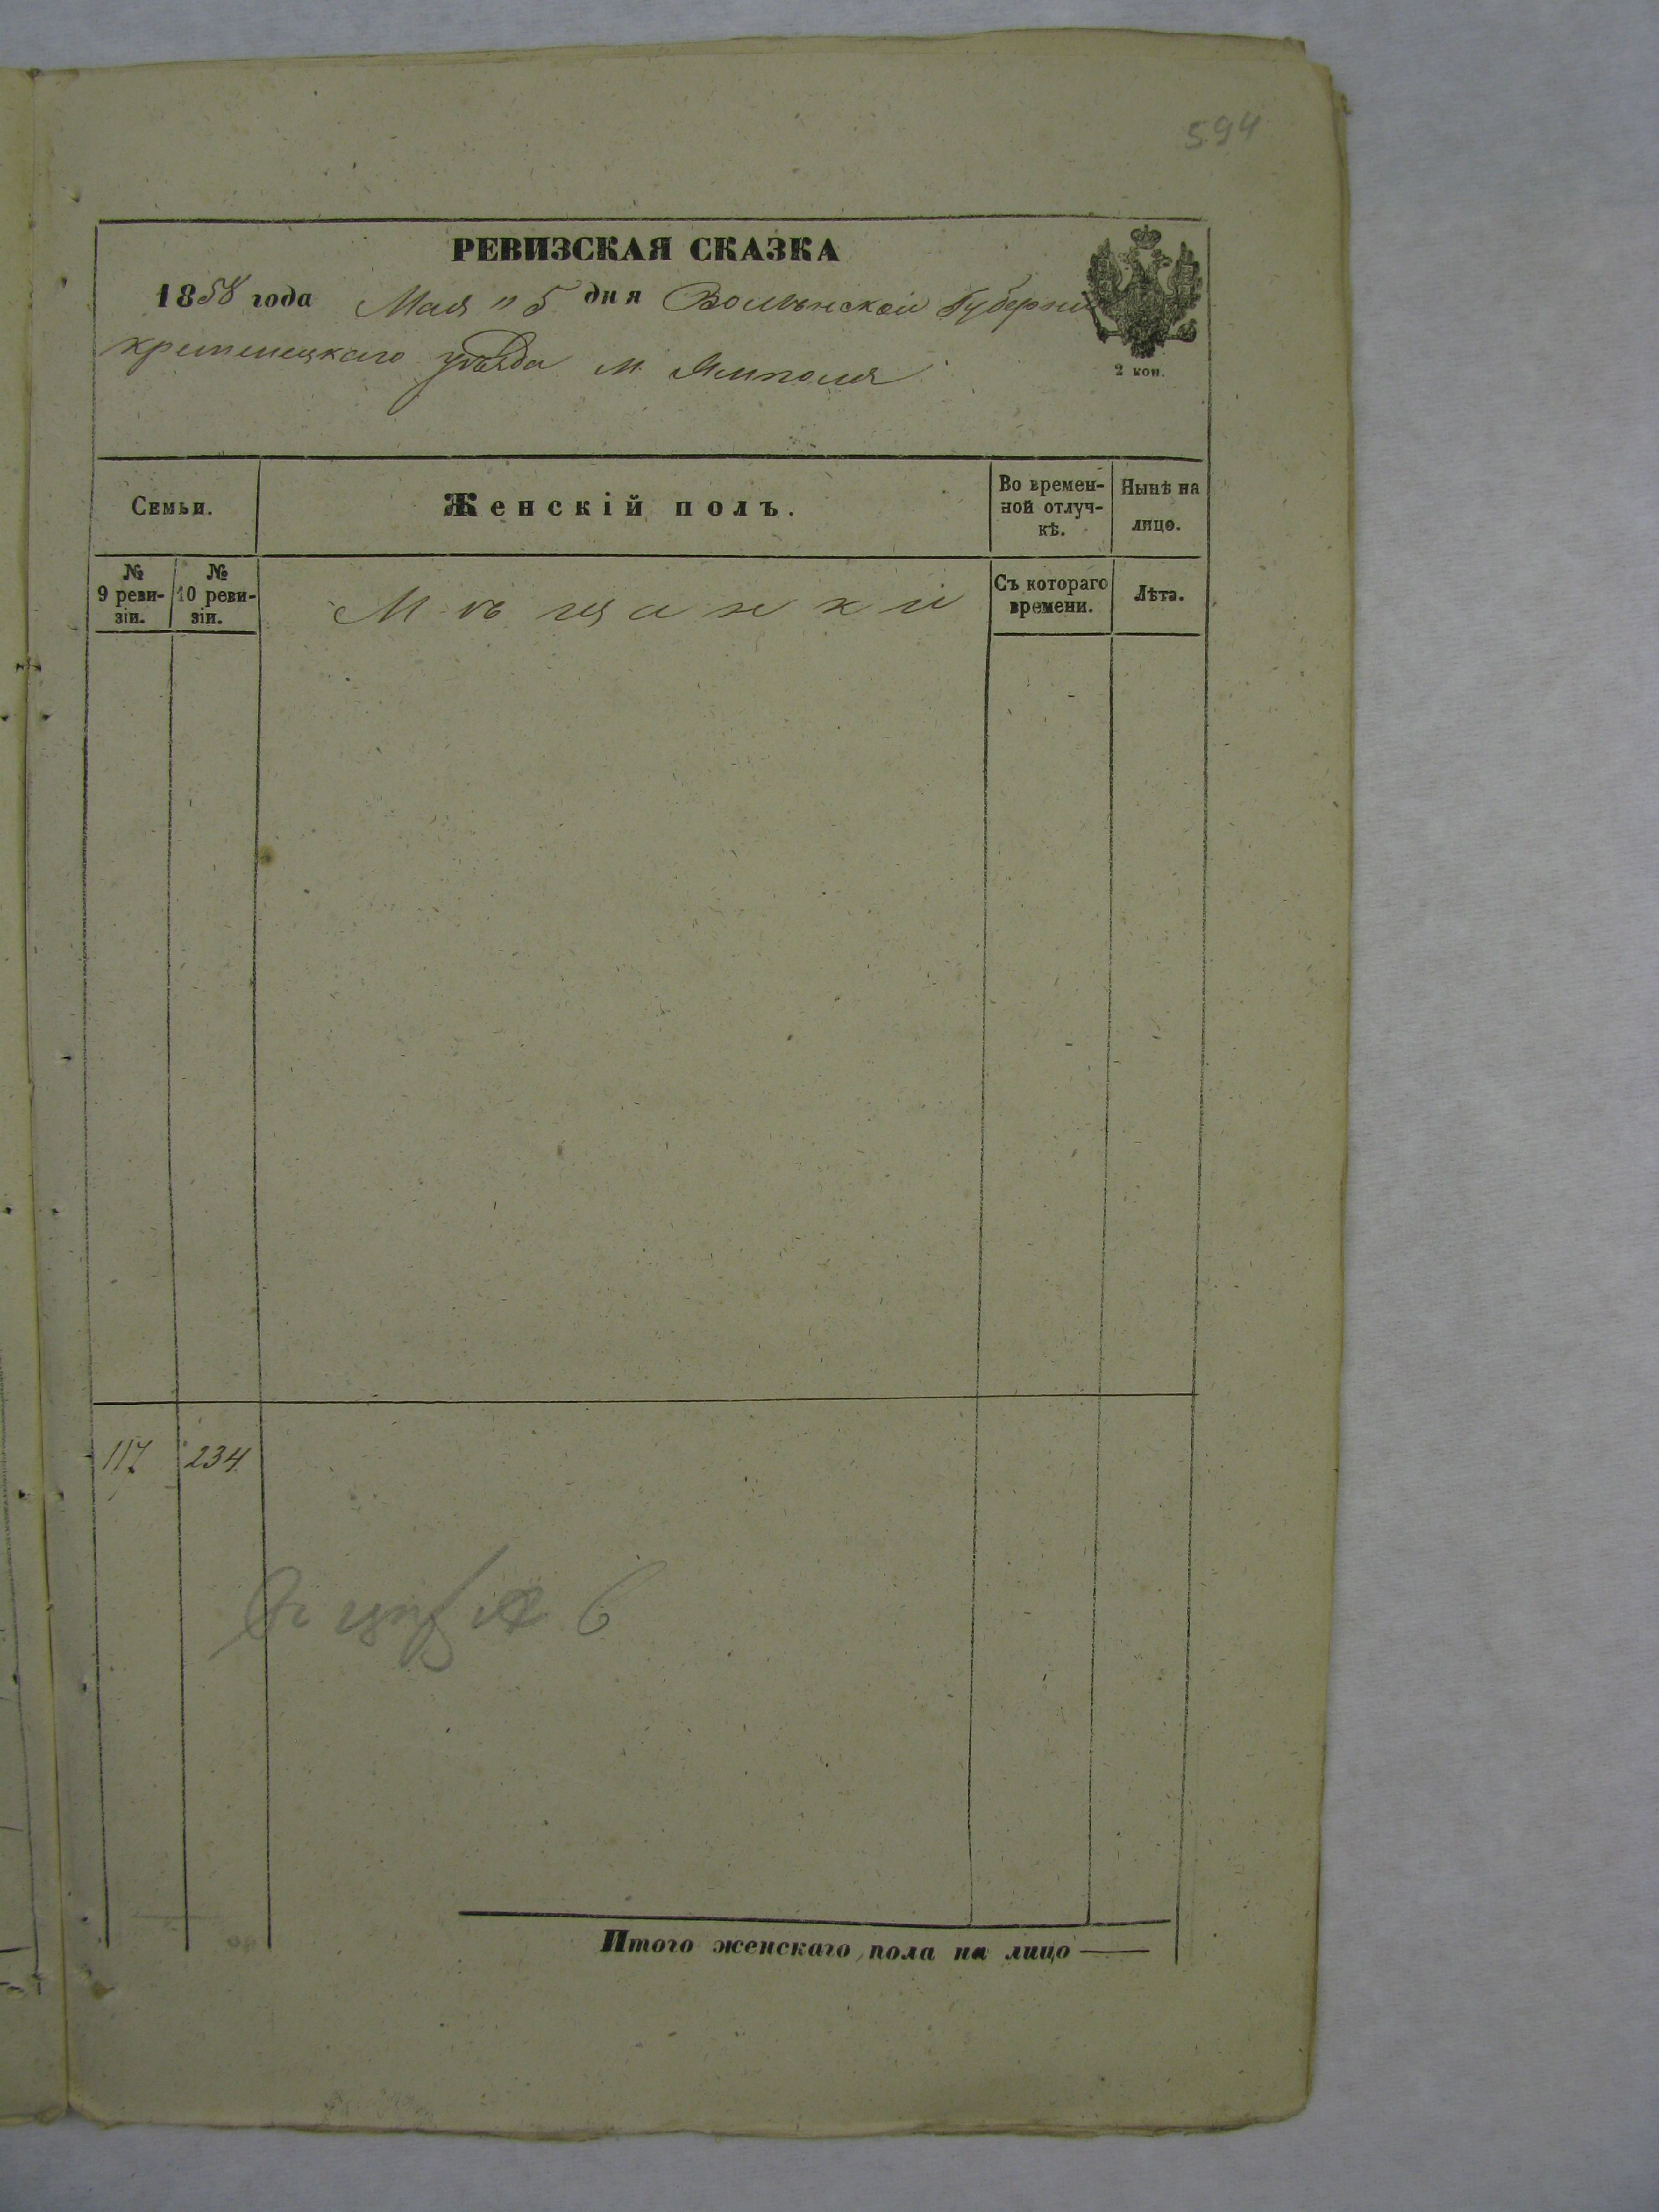 594
РЕВИЗСКАЯ СКАЗКА
1858 года Мая " 5 дня Волынской Губерніи
кременецкаго уѣзда м. Ямполя
2 коп.
Семьи.
Женскій полъ.
Во времен-
ной отлуч-
кѣ.
Нынѣ на
лицо.
№
9 реви-
зіи.
№
10 реви-
зіи.
Мѣщанки
Съ котораго
времени.
Лѣта.
117 234
6
Итого женскаго пола на лицо —